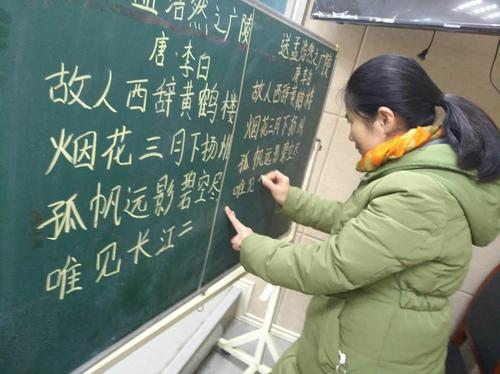 孟浩然之广陵
唐·李白
故人西辞黄鹤楼
烟花三月下扬州
孤帆远影碧空尽
唯见长江二
送孟浩然之广陵
唐李白
故人西辞黄鹤
烟花三月下扬州
孤帆远影碧空尽
唯见